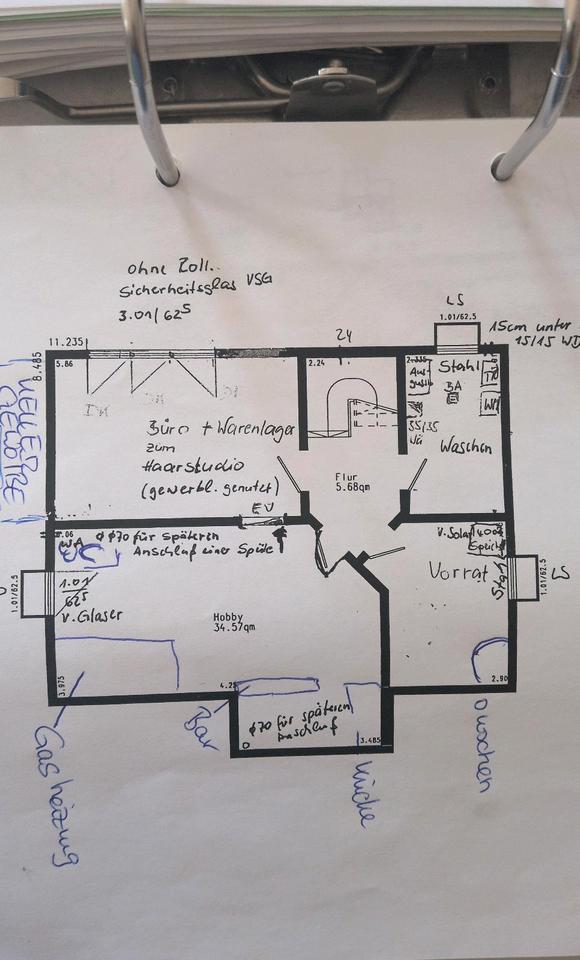 ohne Roll..
Sicherheitsglas VSG
3.01/62⁵
LS
1.01/62.5
24
15cm unter
15/15 WD
11.235
8.485
5.86
2.24
Stahl
BA
Aus
guss
TR
WM
35/35
Waschen
KELLER
Büro + Warenlager
zum
Haarstudio
(gewerbl. genutzt)
Flur
5.68qm
EV
.06
WA
WC
Ø70 für späteren
Anschluß einer Spüle
V. Solar
400l
Speich
Stahl
Vorrat
1.01/62.5
LS
1.01/62.5
1.01
62⁵
V. Glaser
Hobby
34.57qm
3.975
4.25
2.90
Ø70 für späteren
Anschluß
3.485
Bar
Küche
Gasheizung